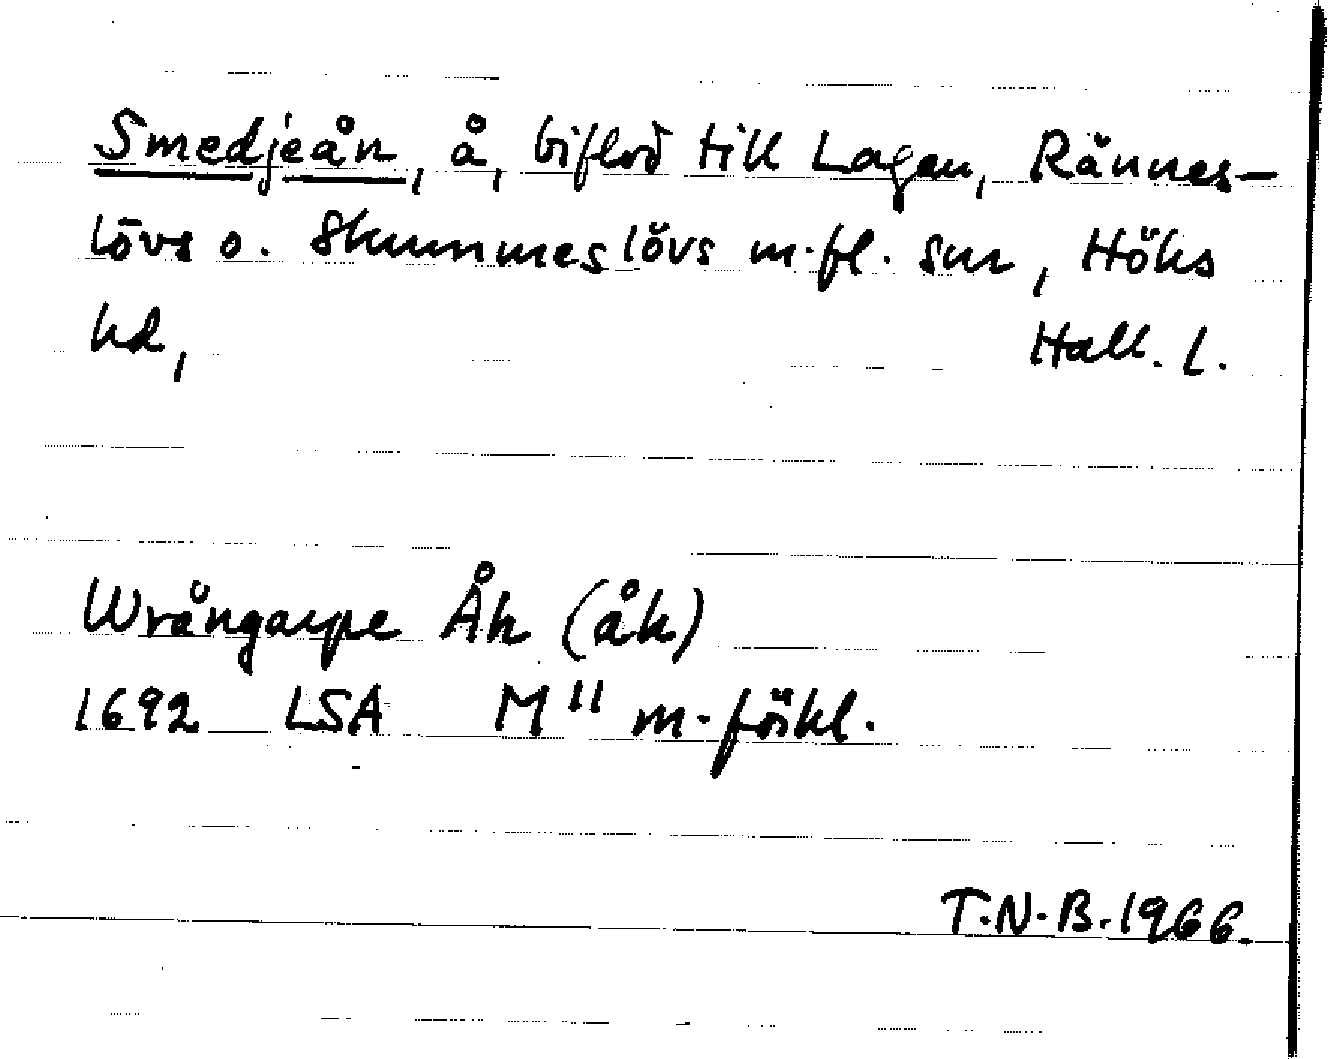 Smedjeån, å, biflod till Lagan, Rännes-
lövs o. Skummeslövs m.fl. snr, Höks
hd, Hall. l.
Wrångarpe Åh (åk)
1692 LSA M 11 m. förkl.
T.N.B. 1966.